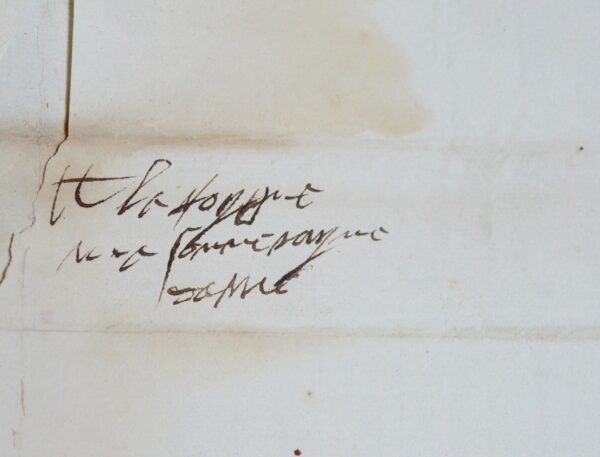 A la Royne
ma souverayne
dame